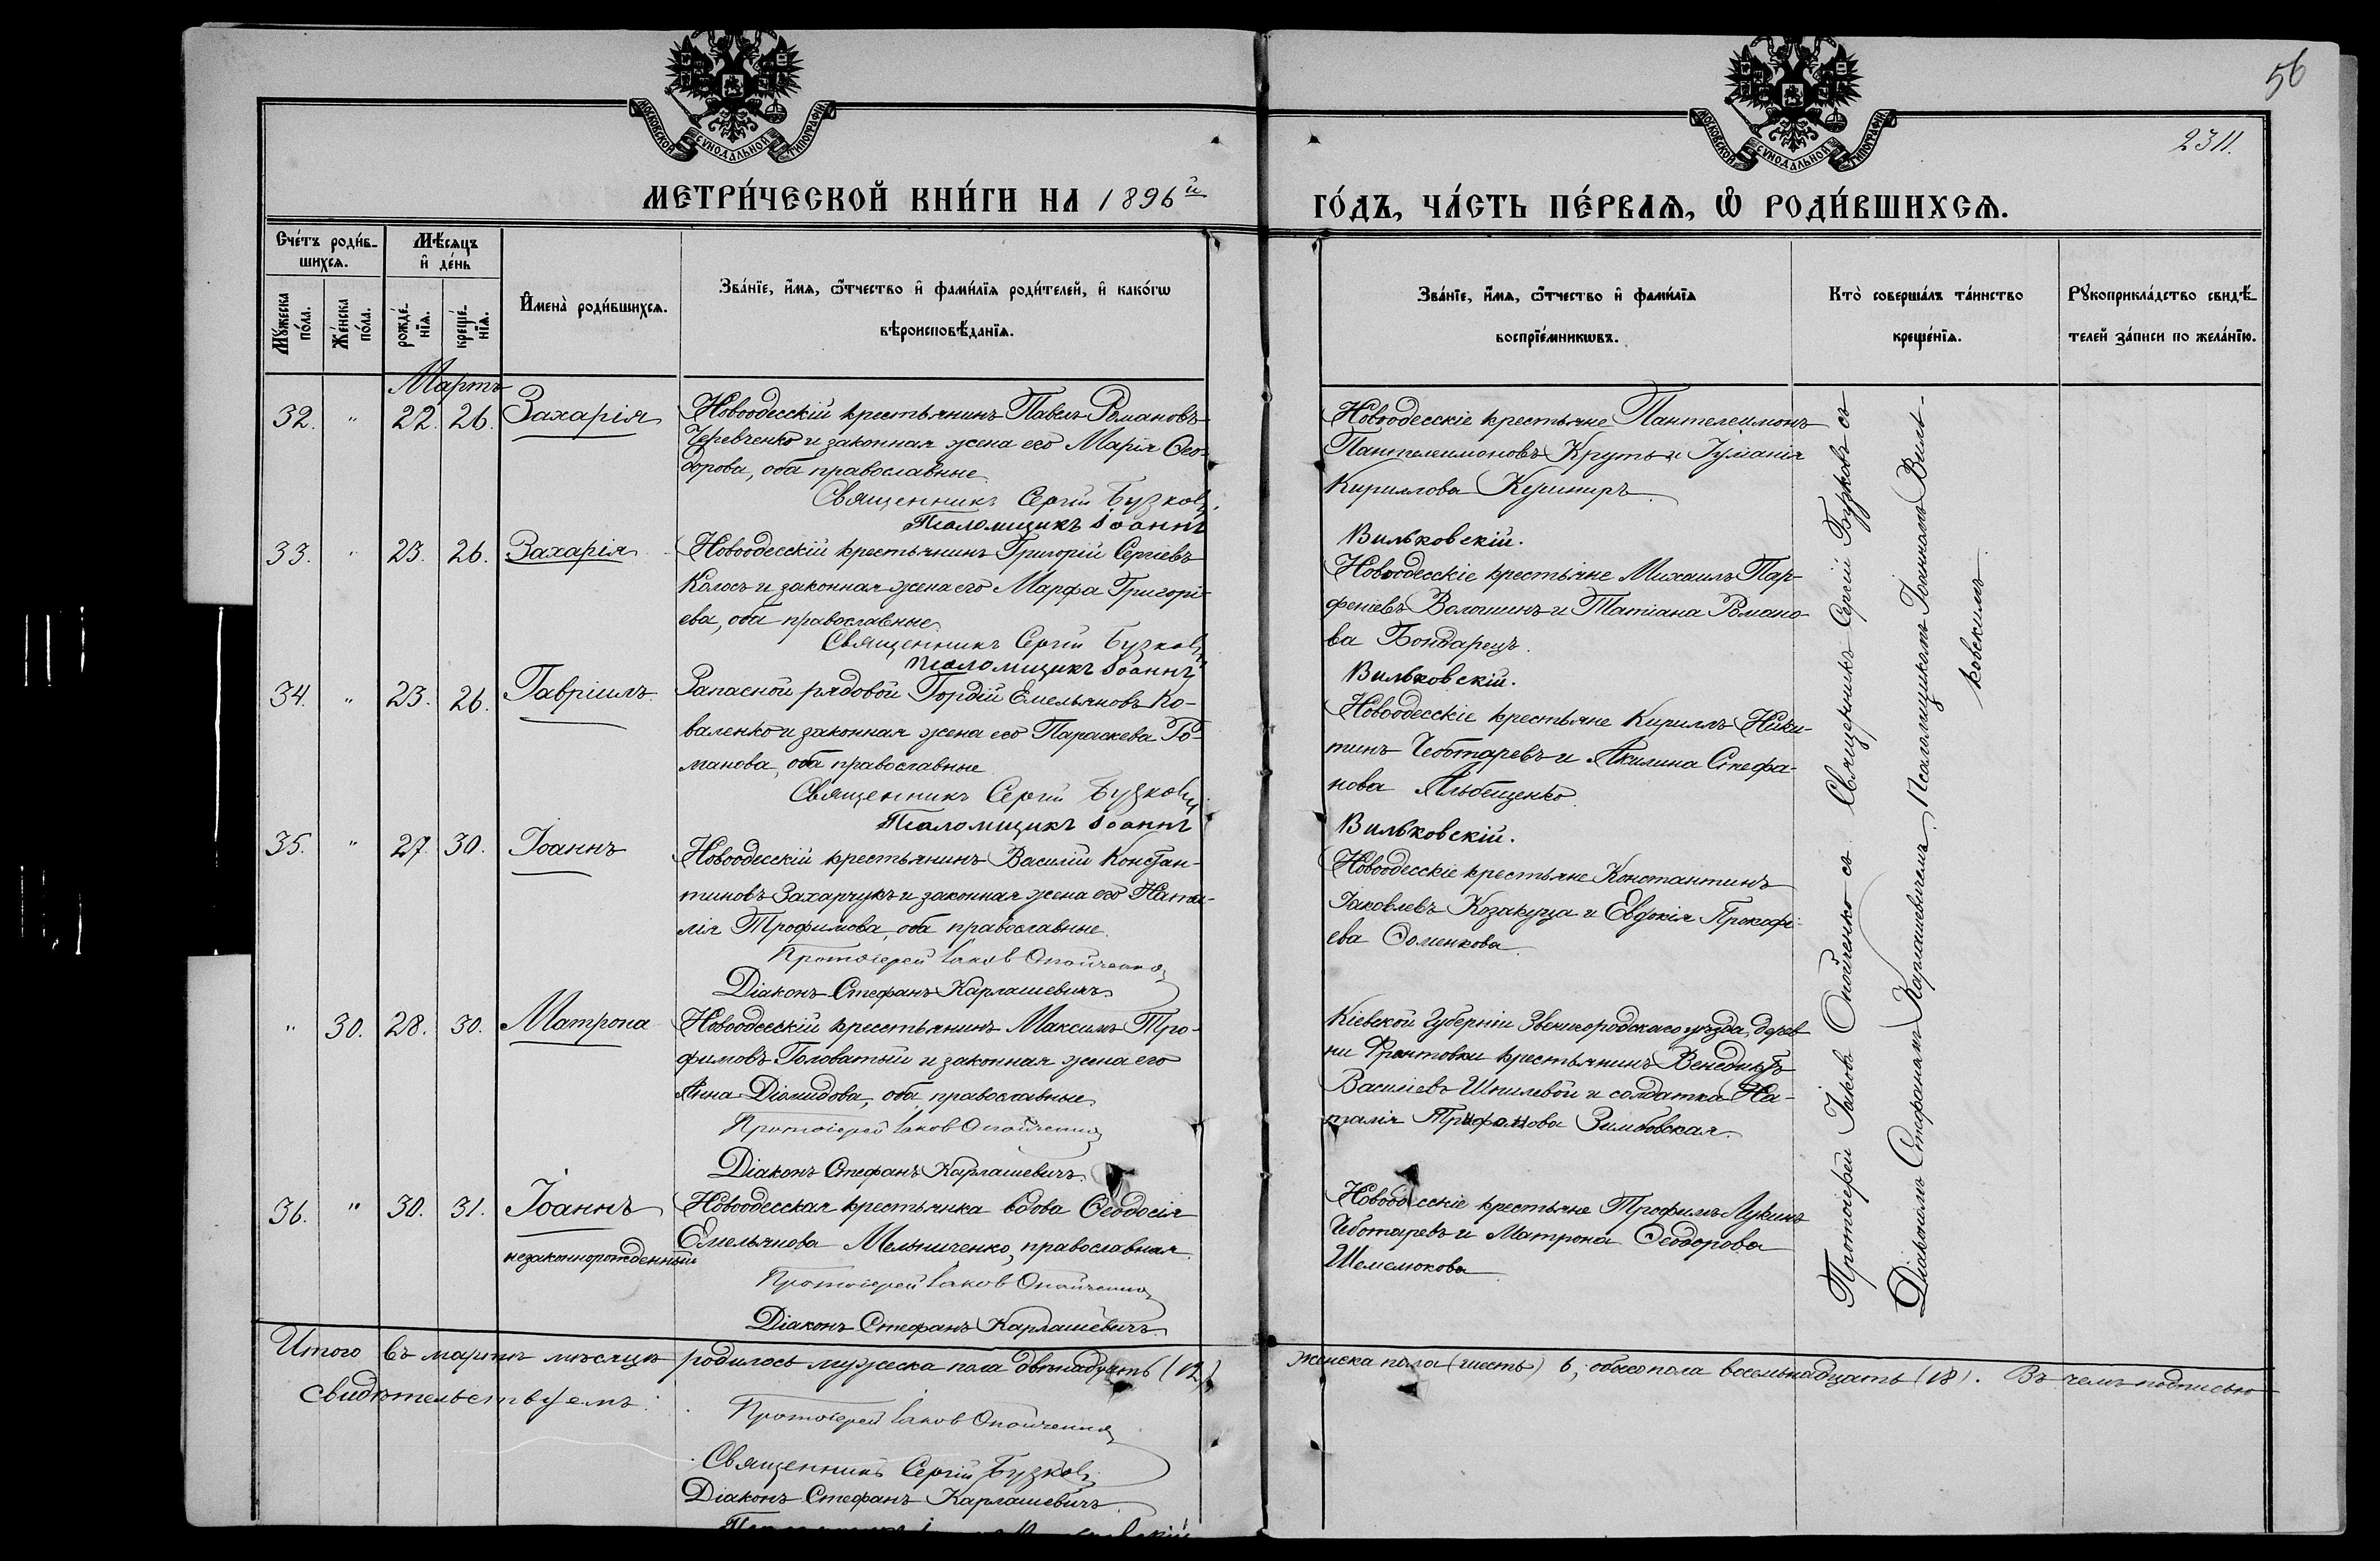 56
2311.
МОСКОВСКОЙ СУНОДАЛЬНОЙ ТИПОГРАФІИ
МОСКОВСКОЙ СУНОДАЛЬНОЙ ТИПОГРАФІИ
МЕТРИ́ЧЕСКОЙ КНИ́ГИ НА 1896й
ГО́ДЪ, ЧА́СТЬ ПЕ́РВАЯ, Ѡ РОДИ́ВШИХСЯ.
Сче́тъ роди́в-
шихся.
Мѣ́сяцъ
и де́нь
Мꙋ́жеска по́ла.
Же́нска по́ла.
рожде́-
нїя.
креще́-
нїя.
Имена̀ роди́вшихся.
Зва́нїе, и́мя, ѻ҆́тчество и фами́лїя роди́телей, и како́гѡ
вѣроисповѣ́данїя.
Зва́нїе, и́мя, ѻ҆́тчество и фами́лїя
воспрїе́мникѡвъ.
Кто̀ соверша́лъ та́инство
креще́нїя.
Рꙋкоприкла́дство свидѣ́-
телей за́писи по жела́нїю.
Мартъ
32. " 22. 26. Захарія
Новоодесскій крестьянинъ Павелъ Романовъ
Черевченко и законная жена его Марія Ѳео-
дорова, оба православные
Священникъ Сергій Бузковъ
Псаломщикъ Іоаннъ
Новоодесскіе крестьяне Пантелеимонъ
Пантелеимоновъ Круть и Іуліанія
Кириллова Кушниръ
Вильковскій.
33. " 23. 26. Захарія
Новоодесскій крестьянинъ Григорій Сергіевъ
Колосъ и законная жена его Марфа Григорі-
ева, оба православные
Священникъ Сергій Бузковъ
Псаломщикъ Іоаннъ
Новоодесскіе крестьяне Михаилъ Пар-
феніевъ Волошинъ и Татіана Романо-
ва Бондарецъ.
Вильковскій.
34. " 23. 26. Гавріилъ
Запасной рядовой Гордій Емельяновъ Ко-
валенко и законная жена его Параскева Ро-
манова, оба православные
Священникъ Сергій Бузковъ
Псаломщикъ Іоаннъ
Новоодесскіе крестьяне Кириллъ Ники-
тинъ Чеботаревъ и Акилина Стефа-
нова Альбещенко
Вильковскій.
35. " 27. 30. Іоаннъ
Новоодесскій крестьянинъ Василій Констан-
тиновъ Захарчукъ и законная жена его Ната-
лія Трофимова, оба православные
Протоіерей Іаковъ Опойченко
Діаконъ Стефанъ Карлашевичъ
Новоодесскіе крестьяне Константинъ
Іаковлевъ Козакуца и Евдокія Прокофі-
ева Ѳоменкова
" 30. 28. 30. Матрона
Новоодесскій крестьянинъ Максимъ Тро-
фимовъ Головатый и законная жена его
Анна Діомидова, оба православные
Протоіерей Іаковъ Опойченко
Діаконъ Стефанъ Карлашевичъ
Кіевской губерніи Звенигородскаго уѣзда, дерев-
ни крестьянинъ Венедиктъ
Василіевъ Шпилевой и солдатка На-
талія Трифонова Зимбовская.
36. " 30. 31. Іоаннъ
незаконнорожденный
Новоодесская крестьянка вдова Ѳеодосія
Емельянова Мельниченко, православная
Протоіерей Іаковъ Опойченко
Діаконъ Стефанъ Карлашевичъ
Новоодесскіе крестьяне Трофимъ Лукинъ
Чеботаревъ и Матрона Ѳеодорова
Шемелюкова
Протоіерей Іаковъ Опойченко съ Священникъ Сергій Бузковъ съ
Діакономъ Стефаномъ Карлашевичемъ, Псаломщикомъ Іоанномъ Виль-
ковскимъ
Итого въ мартѣ мѣсяцѣ родилось мужеска пола двѣнадцать (12)
женска пола (шесть) 6, обоего пола восемьнадцать (18). Въ чемъ подписью
свидѣтельствуемъ:
Протоіерей Іаковъ Опойченко
Священникъ Сергій Бузковъ
Діаконъ Стефанъ Карлашевичъ